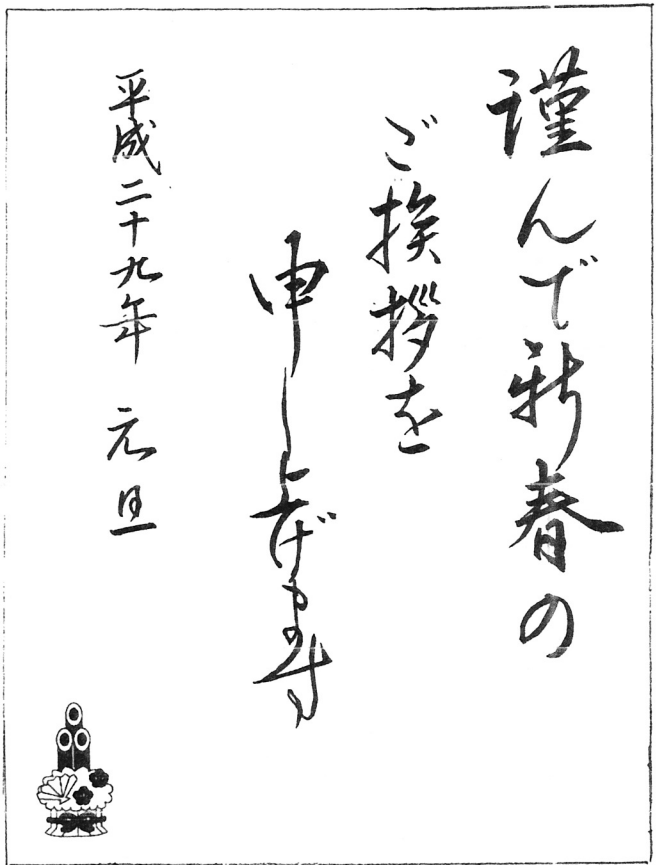 謹んで新春の
ご挨拶を
申し上げます
平成二十九年 元旦